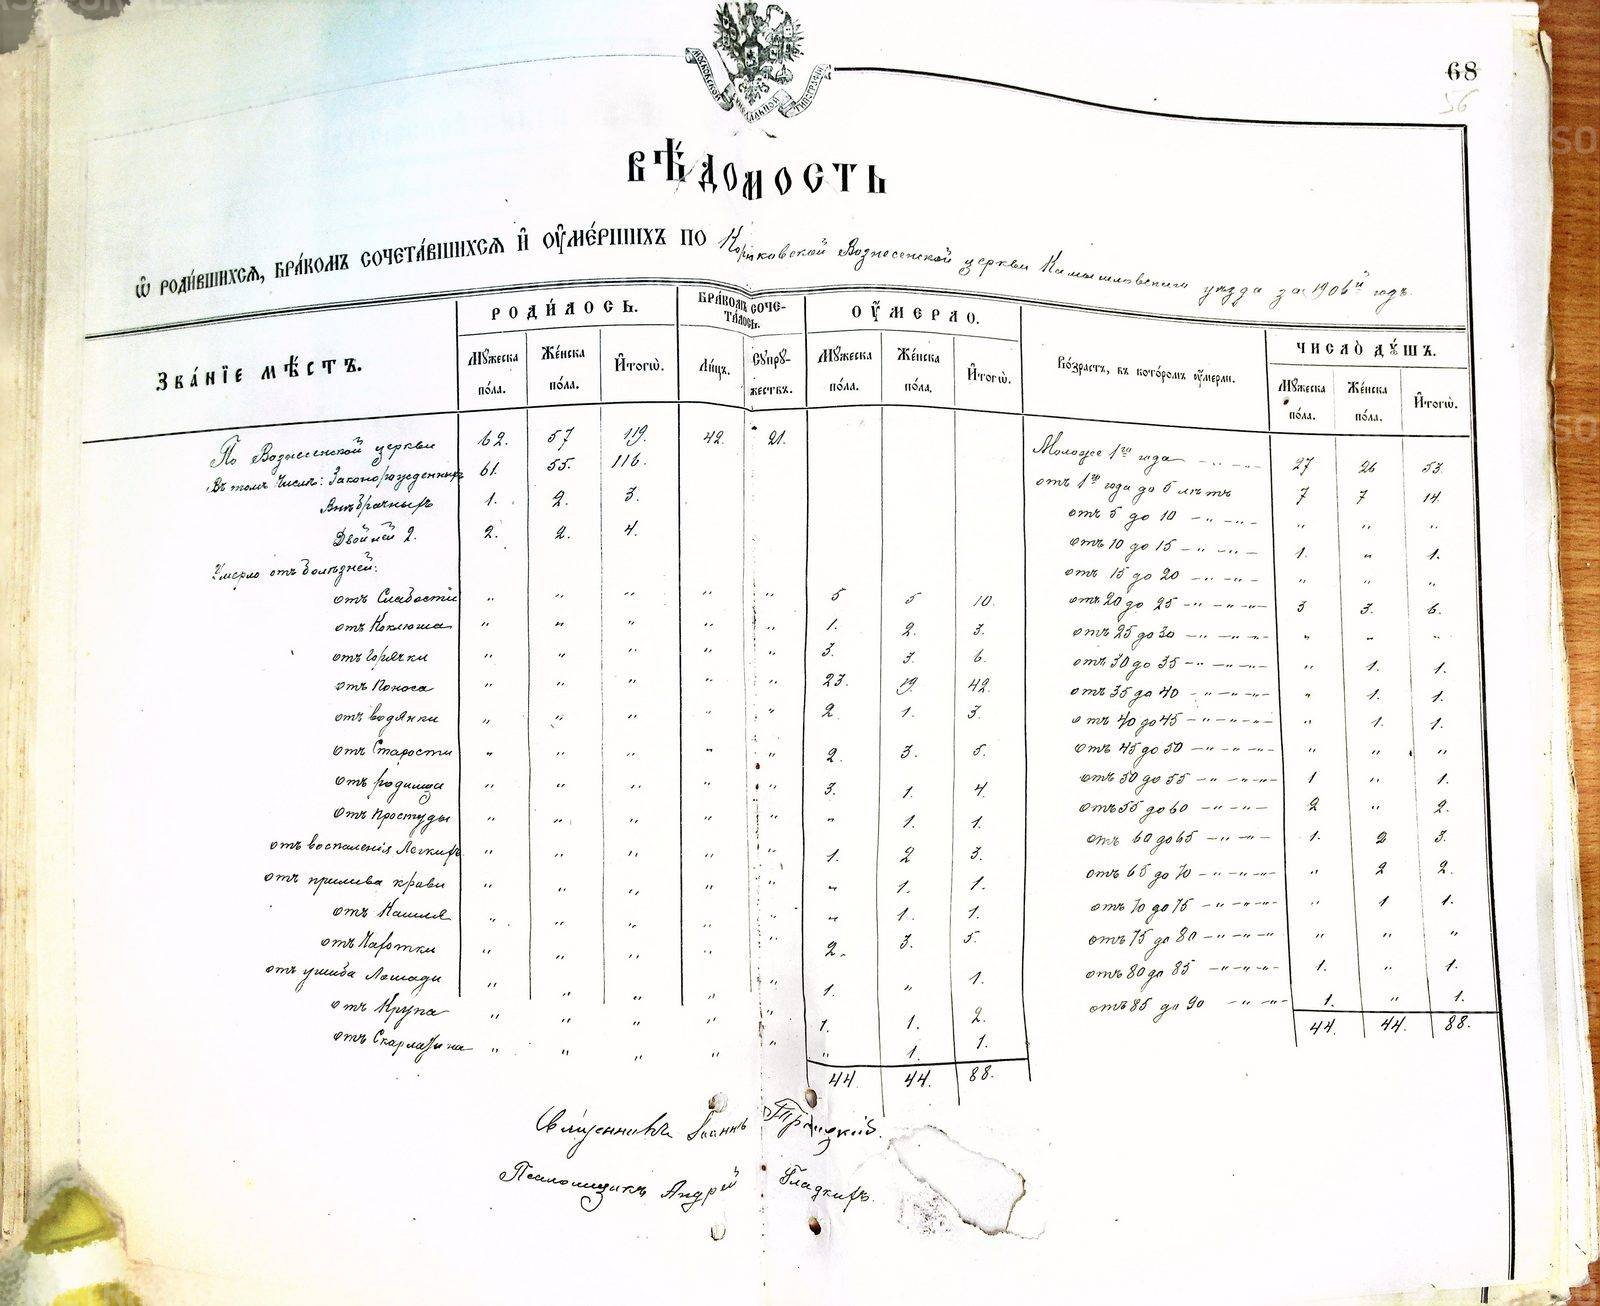 68
56
МОСКОВСКОЙ СѴНОДАЛЬНОЙ ТИПОГРАФІИ
ВѢДОМОСТЬ
Ѡ РОДИВШИХСЯ, БРАКОМЪ СОЧЕТАВШИХСЯ И ОУМЕРШИХЪ ПО Вознесенской церкви Камышловскаго уѣзда за 1906й годъ.
ЗВАНІЕ МѢСТЪ. РОДИЛОСЬ. БРАКОМЪ СОЧЕТАЛОСЬ. ОУМЕРЛО. Возрастъ, въ которомъ оумерли. ЧИСЛО ДУШЪ.
Мужеска пола. Женска пола. Итогѡ. Лицъ. Супружествъ. Мужеска пола. Женска пола. Итогѡ. Мужеска пола. Женска пола. Итогѡ.
По Вознесенской церкви 62. 57 119. 42. 21.
Въ томъ числѣ: Законорожденныхъ 61. 55. 116.
Внѣбрачныхъ 1. 2. 3.
Двойней 2. 2. 2. 4.
Умерло отъ болѣзней:
отъ Слабости " " " " " 5 5 10.
отъ Коклюша " " " " " 1. 2. 3.
отъ Горячки " " " " " 3. 3. 6.
отъ Поноса " " " " " 23. 19. 42.
отъ водянки " " " " " 2. 1. 3.
отъ Старости " " " " " 2. 3. 5.
отъ родимца " " " " " 3. 1. 4.
отъ Простуды " " " " " " 1. 1.
отъ воспаленія Легкихъ " " " " " 1. 2 3.
отъ прилива крови " " " " " " 1. 1.
отъ Кашля " " " " " " 1. 1.
отъ Чахотки " " " " " 2. 3. 5.
отъ ушиба Лошади " " " " " 1. " 1.
отъ Крупа " " " " " 1. 1. 2.
отъ Скарлатина " " " " " " 1. 1.
44. 44. 88.
Моложе 1го года - " - " - 27 26 53.
отъ 1го года до 5 лѣтъ 7 7 14.
отъ 5 до 10 - " - " - " " "
отъ 10 до 15 - " - " - 1. " 1.
отъ 15 до 20 - " - " - " " "
отъ 20 до 25 - " - " - " - 3 3. 6.
отъ 25 до 30 - " - " - " " "
отъ 30 до 35 - " - " - " - " 1. 1.
отъ 35 до 40 - " - " - " - " 1. 1.
отъ 40 до 45 - " - " - " - " 1. 1.
отъ 45 до 50 - " - " - " - " " "
отъ 50 до 55 - " - " - " - 1 " 1.
отъ 55 до 60 - " - " - 2 " 2.
отъ 60 до 65 - " - " - 1. 2 3.
отъ 65 до 70 - " - " - " - " 2 2.
отъ 70 до 75 - " - " - " - " 1 1.
отъ 75 до 80 - " - " - " - " " "
отъ 80 до 85 - " - " - " - 1. " 1.
отъ 85 до 90 - " - " - 1. " 1.
44. 44. 88.
Священникъ Іоаннъ Троицкій.
Псаломщикъ Андрей Гладкихъ.